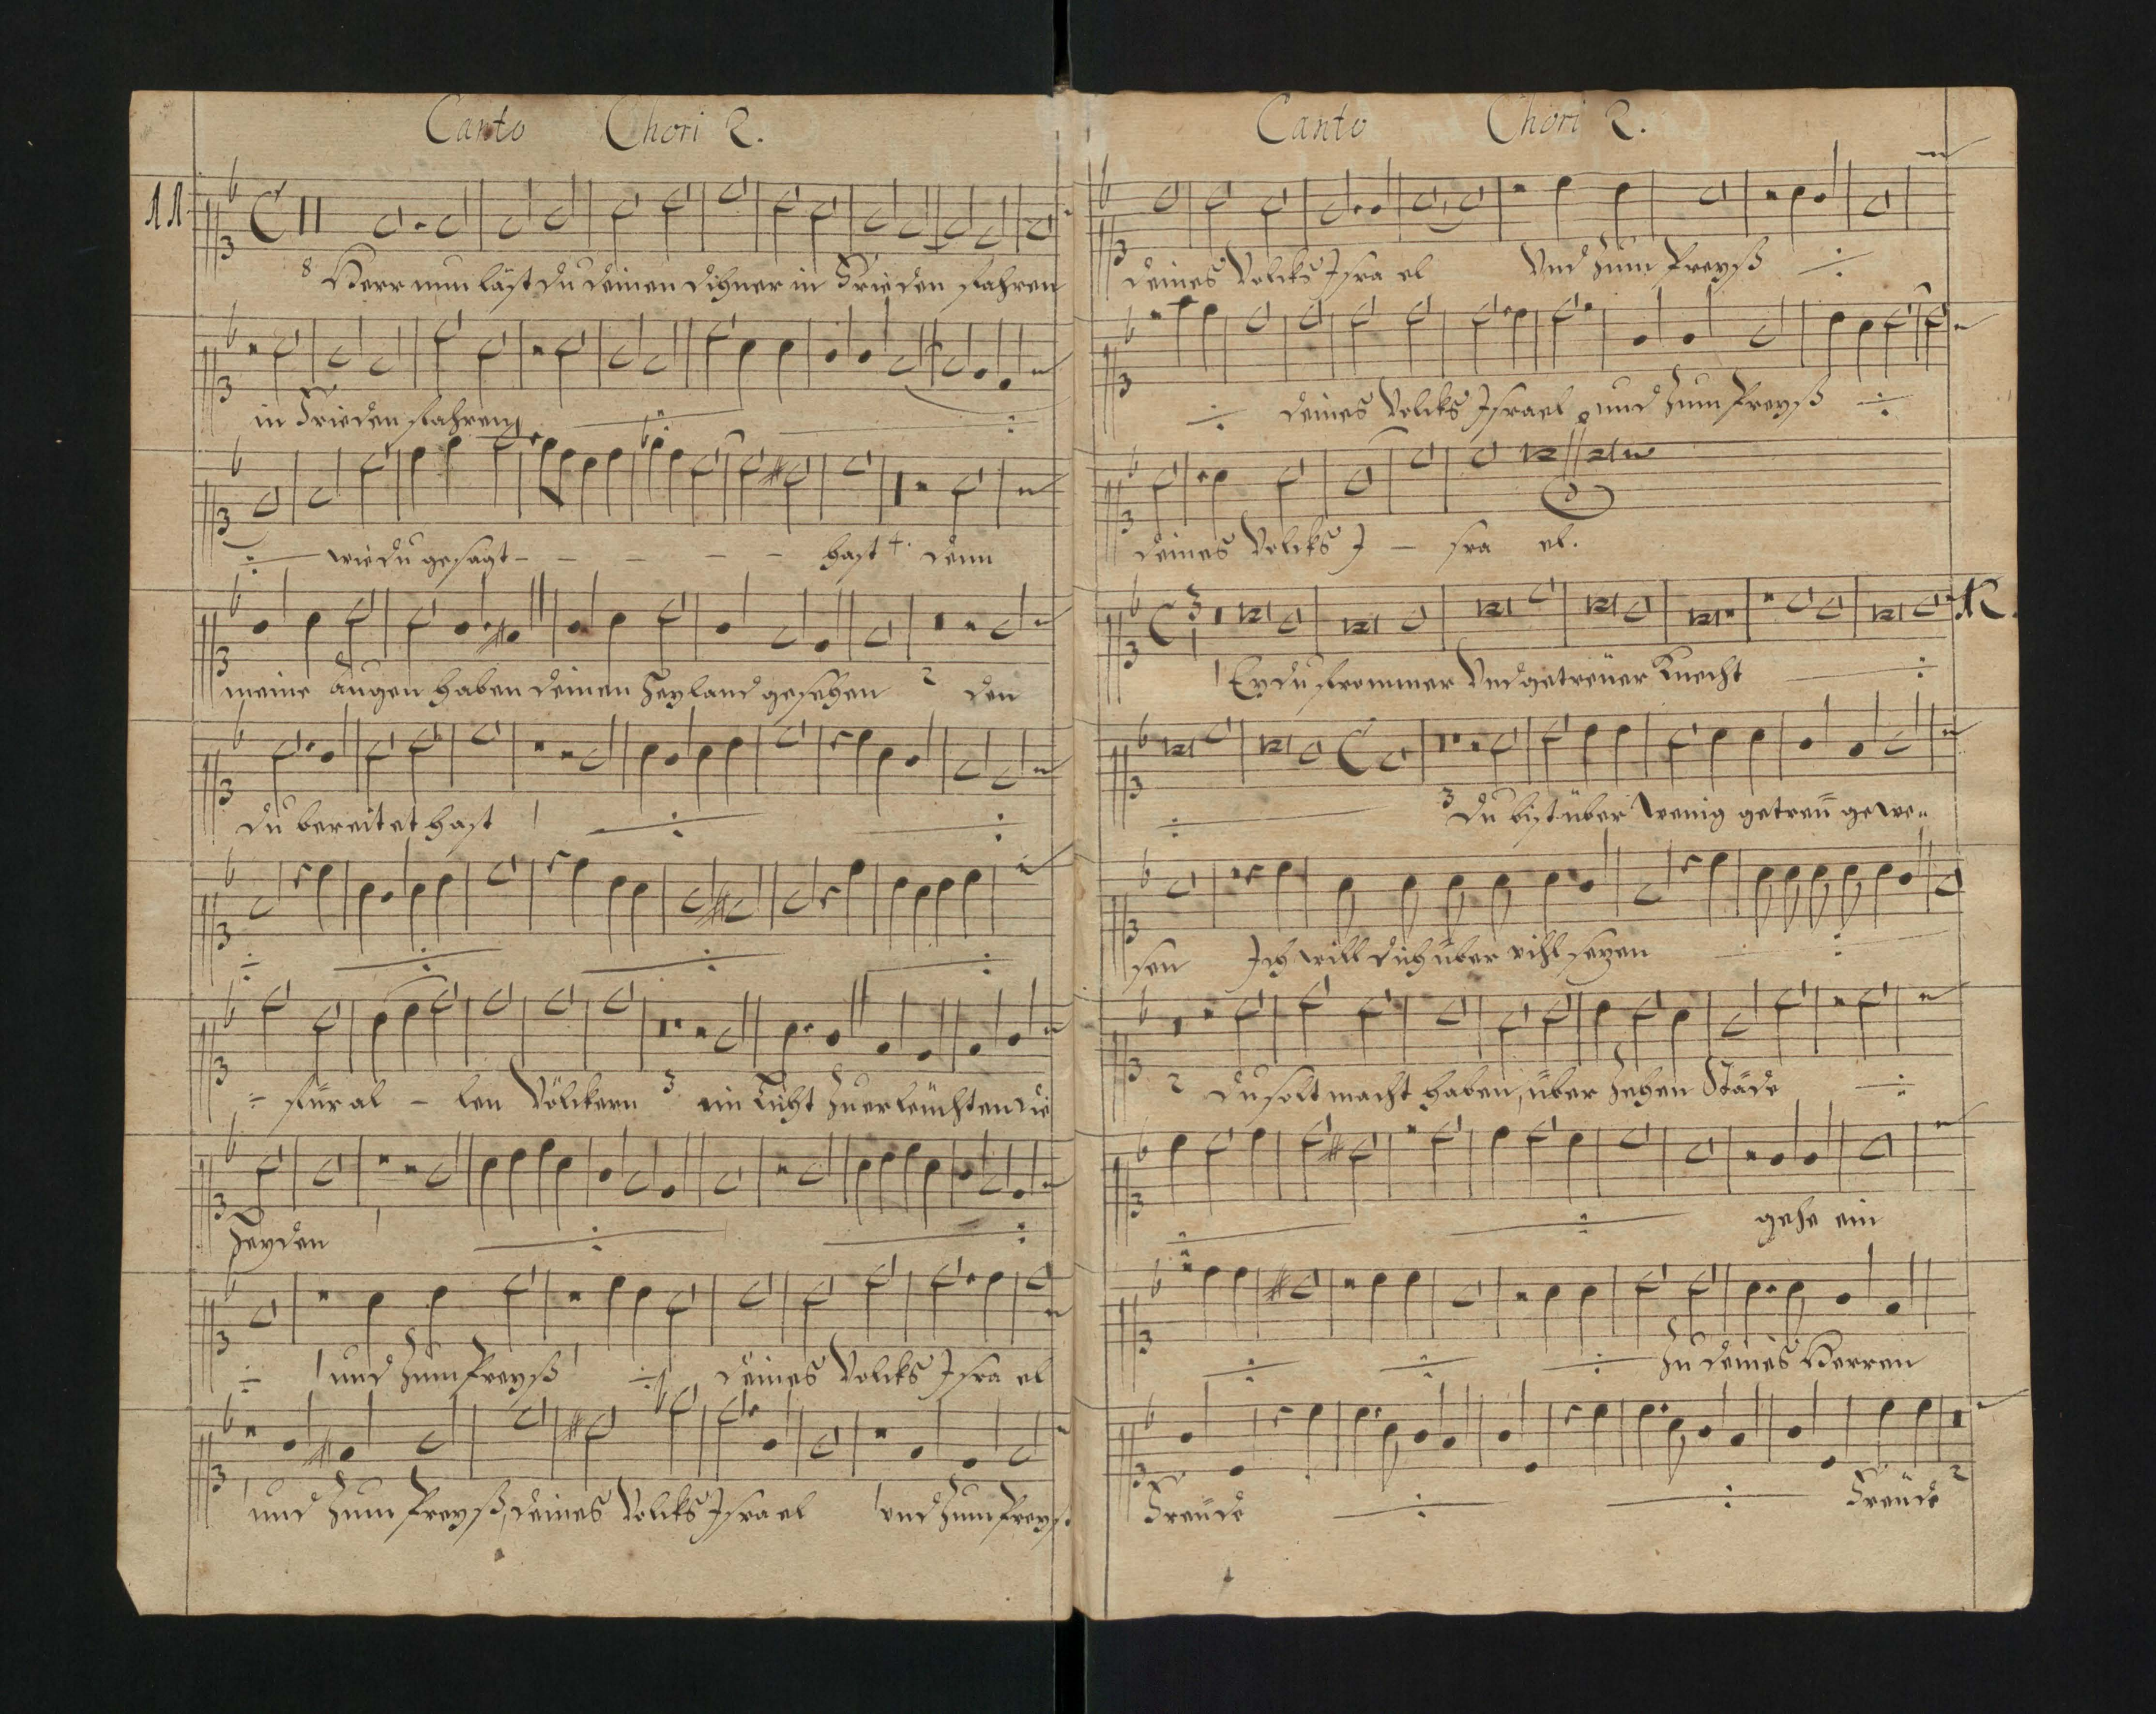 Canto Chori 2.
11
8 Herr nun läst du deinen diener in Frieden fahren
in Frieden fahren
wie du gesagt - - - - - hast 4. denn
meine Augen haben deinen Heyland gesehen 2 den
du bereitet hast 1
für al - len Völckern 3 ein Licht zu erleuchten die
Heyden 1
1 und zum Preyß 1 deines Volcks Israel
1 und zum Preyß, deines Volcks Israel 1 und zum Preyß
Canto Chori 2.
deines Volcks Isra el Und zum Preyß
deines Volcks Israel und zum Preyß
deines Volcks I - sra el.
12.
1 Ey du frommer Und getreüer Knecht
3 Du bist über Wenig getreü gewe-
sen Ich will dich über vihl sezen
2 du solt macht haben, über zehen Städe
gehe ein
zu deines Herren
Freüde Freüde 2